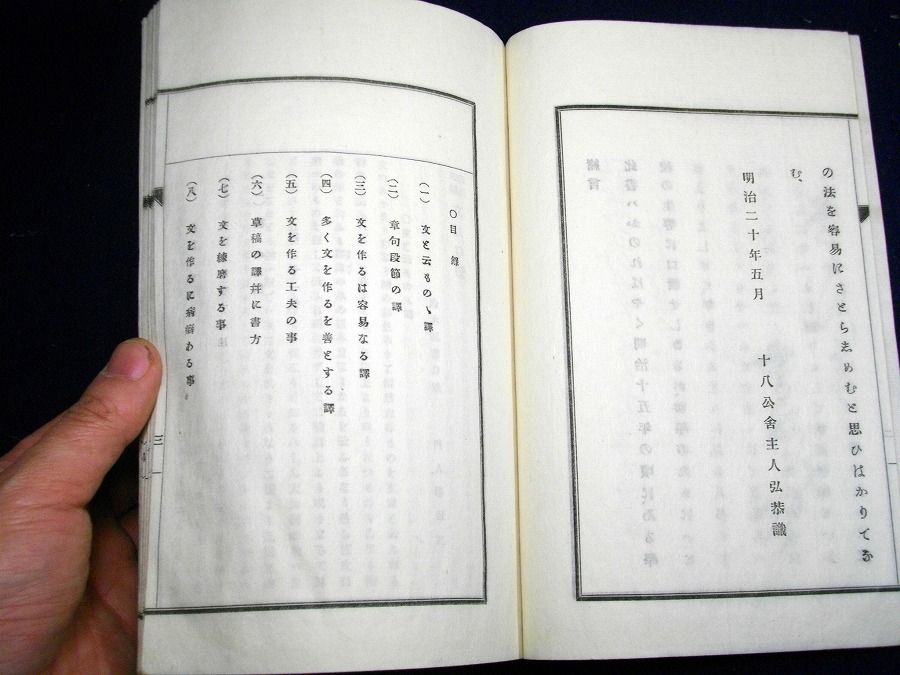 の法を容易にさとらしめむと思ひはかりてな
む、
明治二十年五月
十八公舎主人弘恭識
〇目録
(一) 文と云ものゝ譯
(二) 章句段節の譯
(三) 文を作るは容易なる譯
(四) 多く文を作るを善とする譯
(五) 文を作る工夫の事
(六) 草稿の譯幷に書方
(七) 文を練磨する事
(八) 文を作るに病癖ある事
三